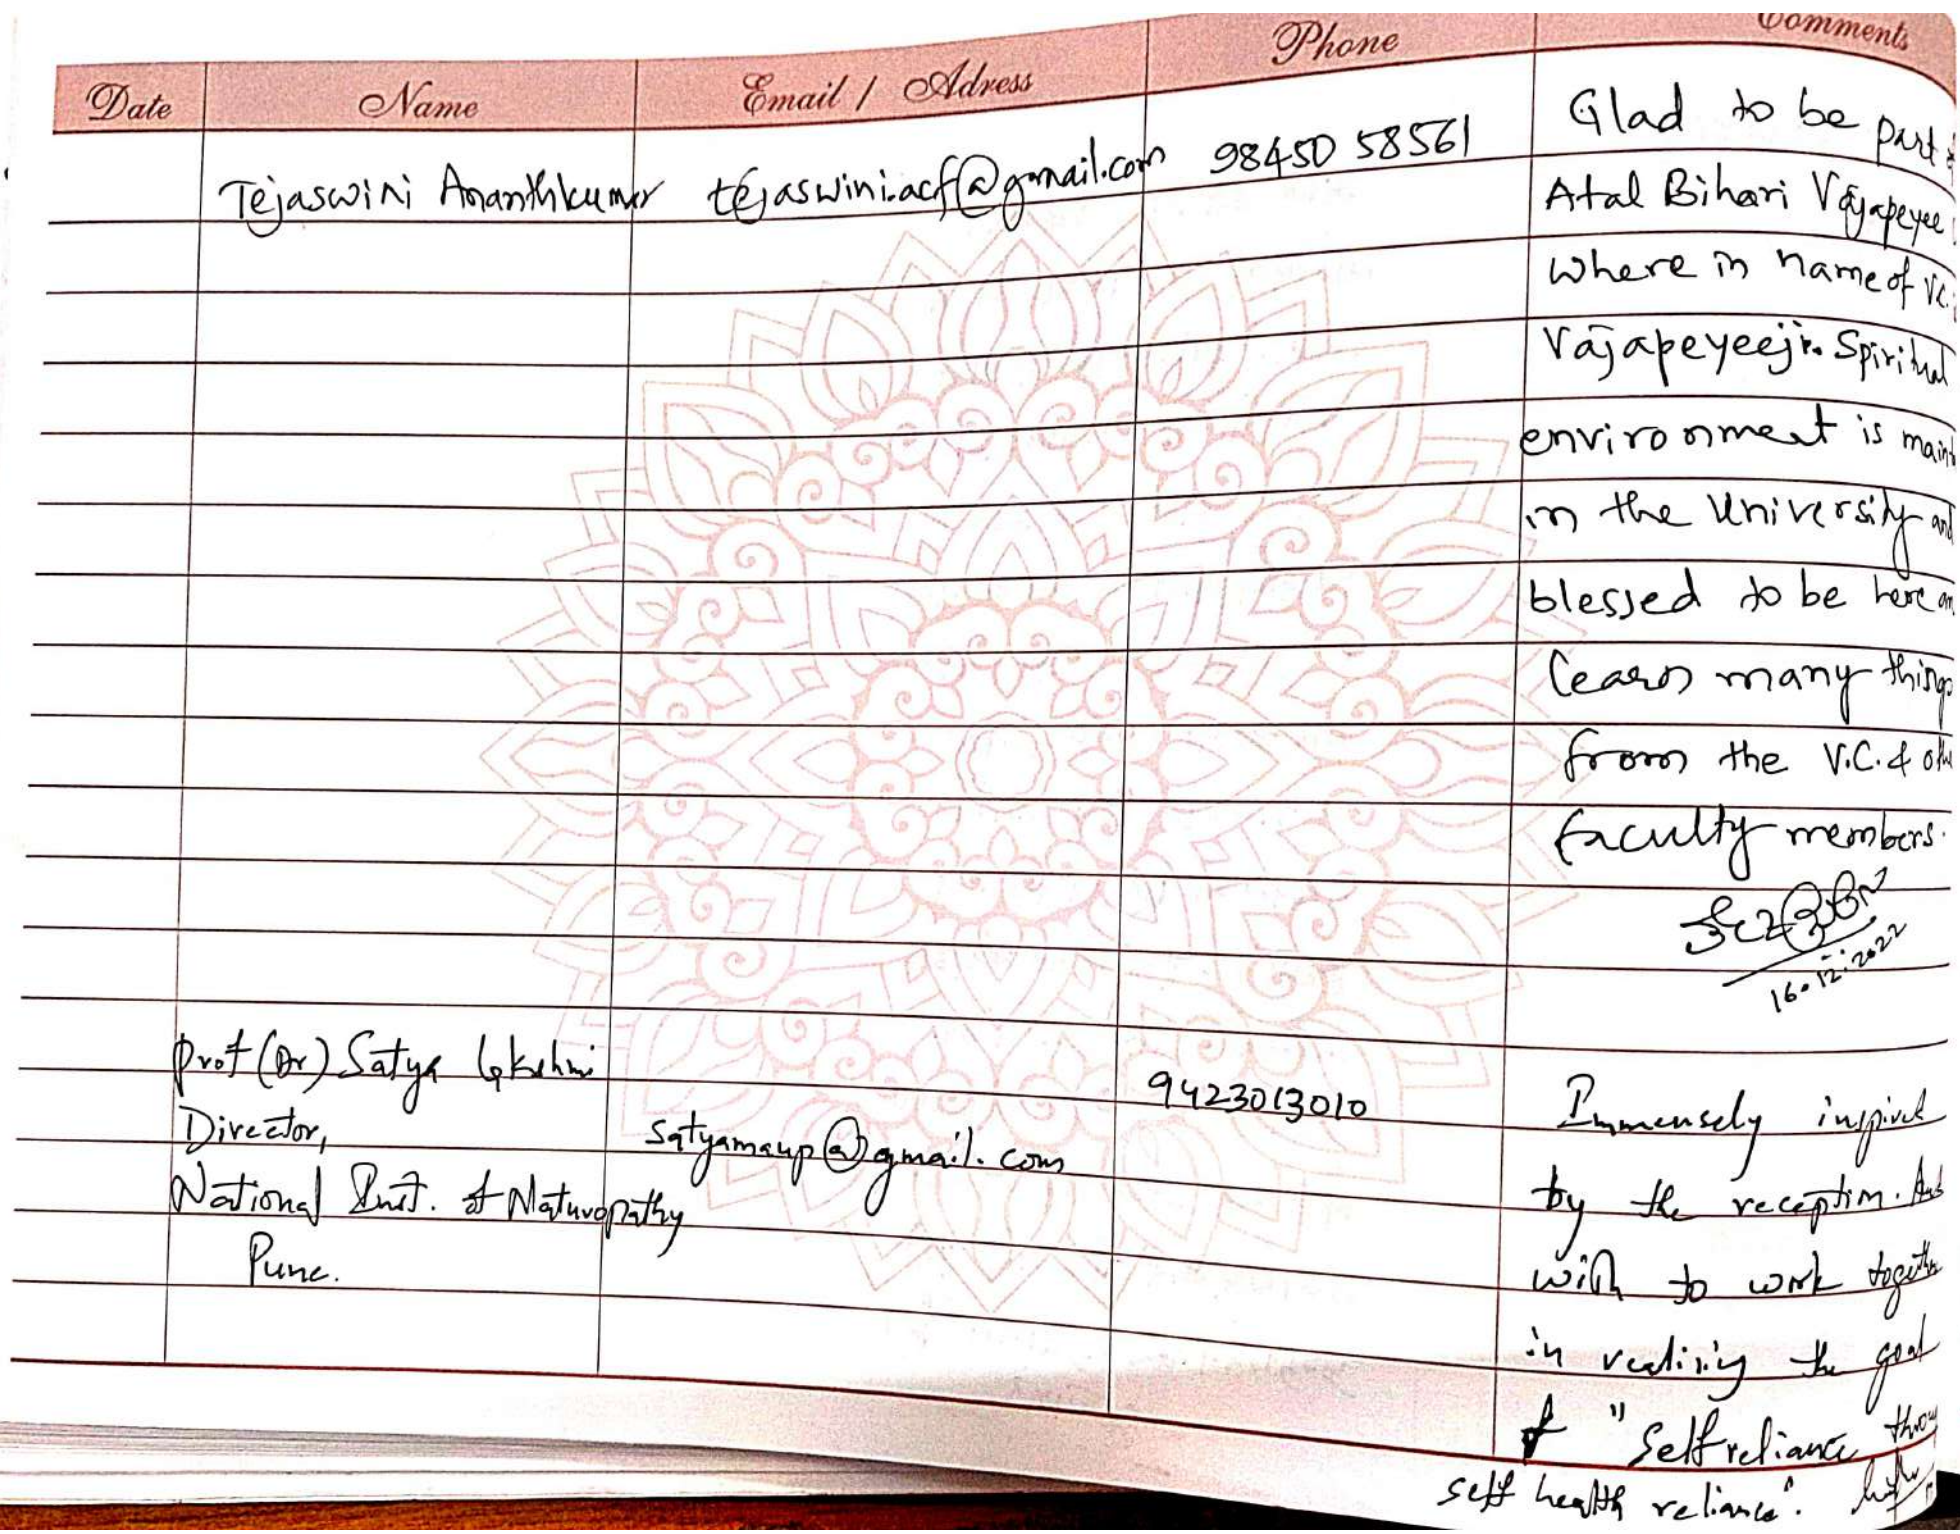 Date Name Email / Adress Phone Comments
Tejaswini Ananthkumar tejaswini.acf@gmail.com 98450 58561
Glad to be part
Atal Bihari Vajapeyee
where in name of V.C.
Vajapeyeeji. Spiritual
environment is maint
in the University and
blessed to be here an
learn many things
from the V.C. & othe
faculty members.
16.12.2022
Prof (Dr) Satya Lakshmi
Director,
National Inst. of Naturopathy
Pune.
satyamaup@gmail.com
9423013010
Immensely inspired
by the reception.
with to work togethe
in realising the goal
of "Self reliance throu
self health reliance".